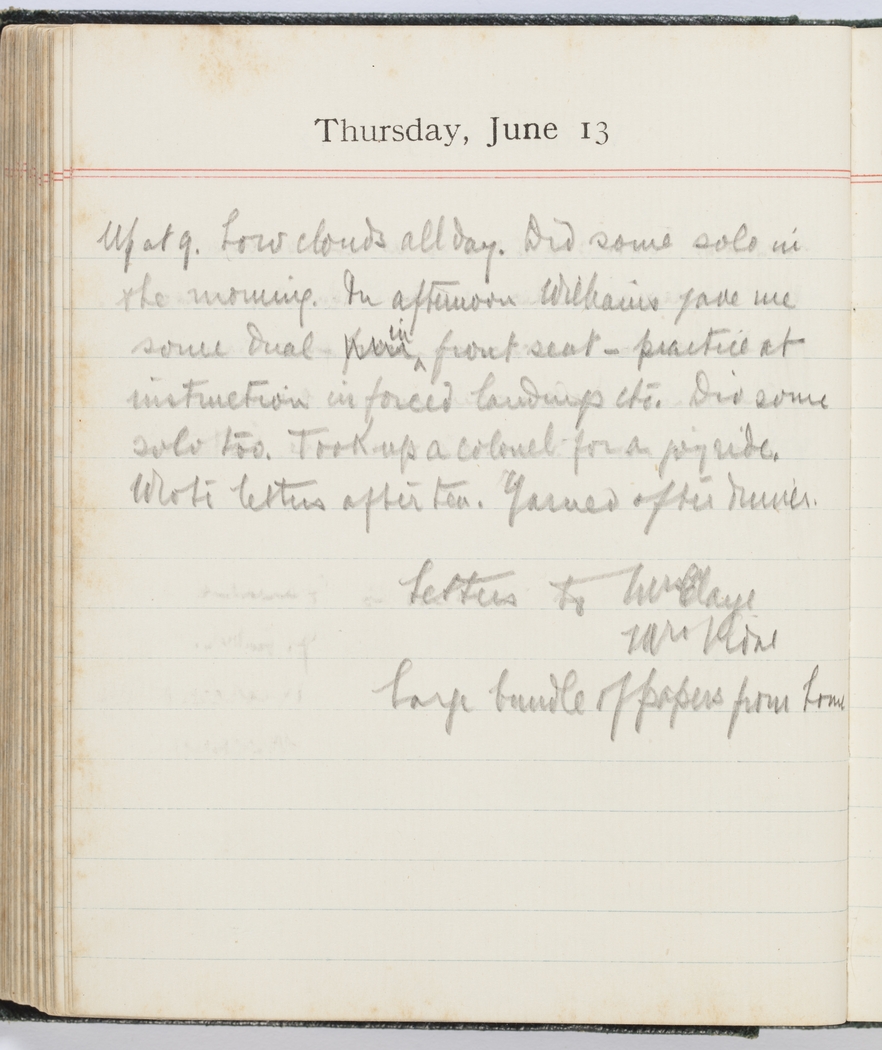 Thursday, June 13
Up at 9. Low clouds all day. Did some solo in
the morning. In afternoon Williams gave me
some dual in front seat - practice at
instruction in forced landings etc. Did some
solo too. Took up a colonel for a joyride.
Wrote letters after tea. Yarned after dinner.
Letters to Mrs
Mrs
Large bundle of papers from home